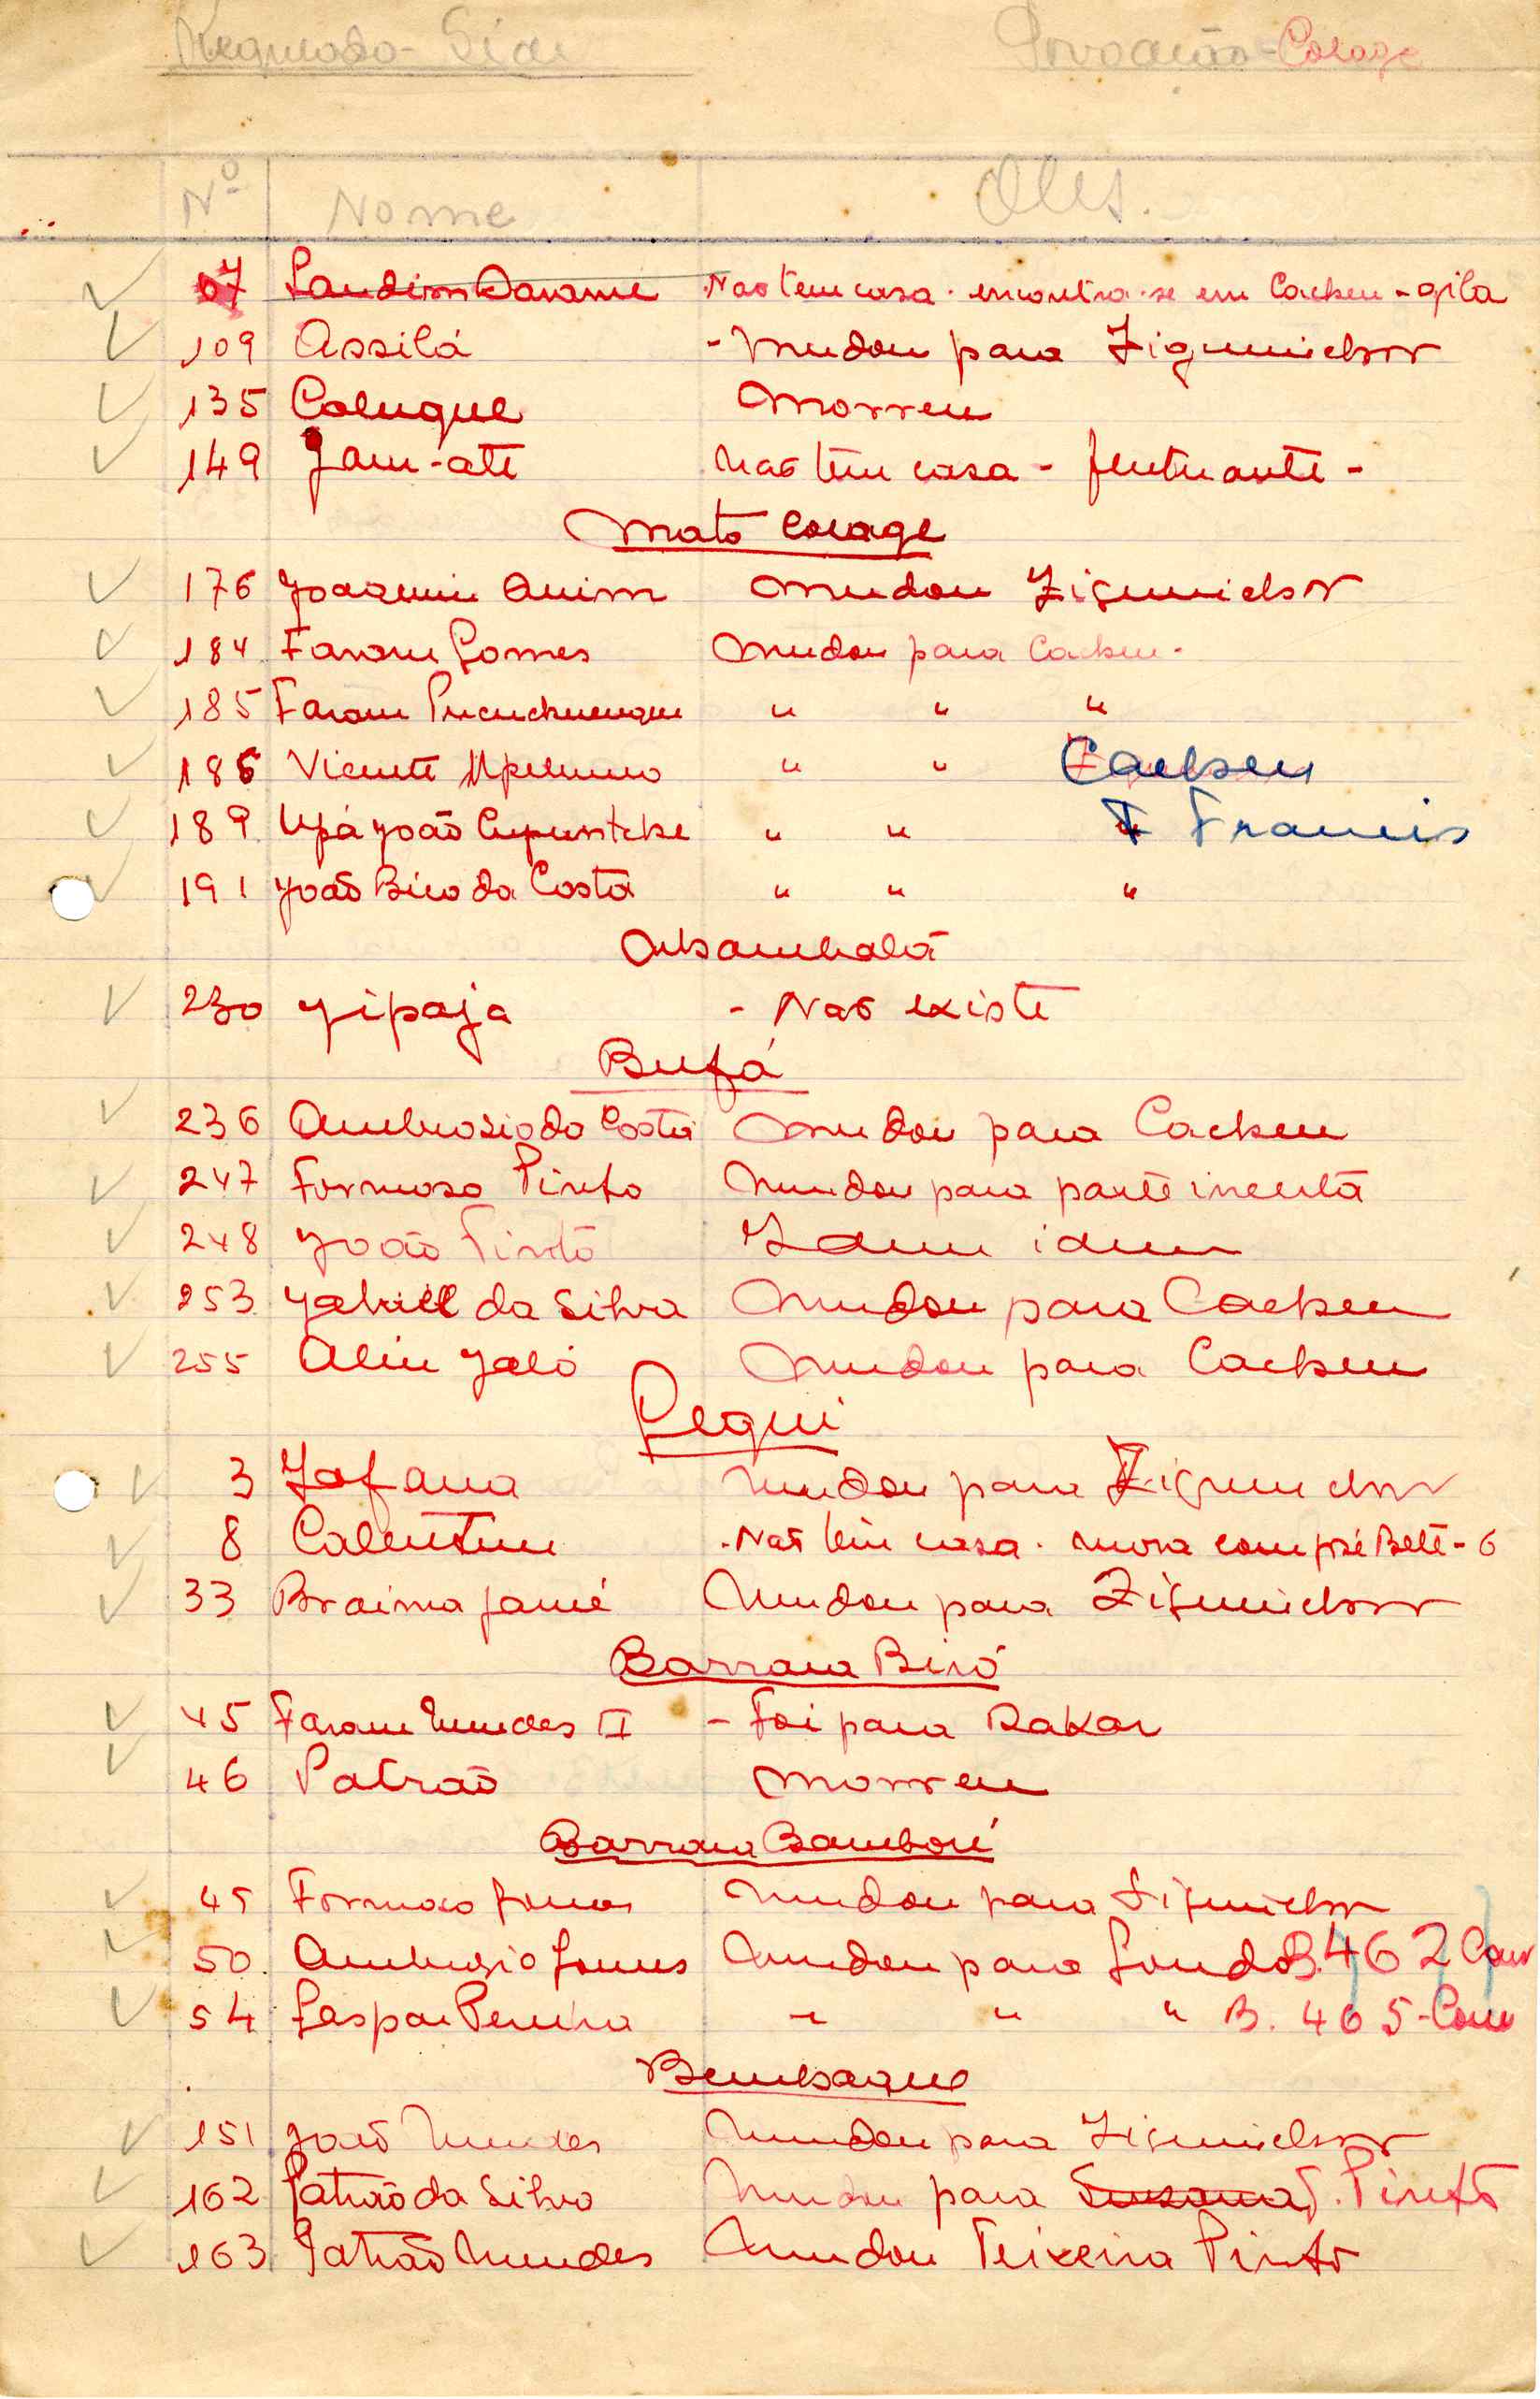 Regulado - Séde Povoação - Corage
Nº Nome Obs.
67 Landim Darame Não tem casa - encontra-se em Cacheu - agila
109 Assilá - Mudou para Ziguinchor
135 Caluque Morreu
149 Jam-até Não tem casa - flutuante -
Mato Corage
176 Joaquim Anim Mudou Ziguinchor
184 Faram Gomes Mudou para Cacheu -
185 Faram " " "
186 Vicente " " Cacheu
189 Upá João " " F Francis
191 João Bico da Costa " " "
230 Yipaja - Não existe
Bufá
236 Ambrosio da Costa Mudou para Cacheu
247 Formoso Pinto Mudou para parte incerta
248 João Pinto Idem idem
253 da Silva Mudou para Cacheu
255 Aliu Jaló Mudou para Cacheu
Pequi
3 Jafana Mudou para Ziguinchor
8 - Não tem casa - mora com José Beté - 6
33 Braima Jamé Mudou para Ziguinchor
Barraca Biró
45 Faram Mendes II - Foi para Dakar
46 Patrão Morreu
Barraca Bamboré
45 Formoso Gomes Mudou para Ziguinchor
50 Ambrosio Gomes Mudou para B. 462
54 Gaspar Pereira " " " B. 465 -
151 João Mendes Mudou para Ziguinchor
162 Patrão da Silva Mudou para Susana T. Pinto
163 Patrão Mendes Mudou Teixeira Pinto